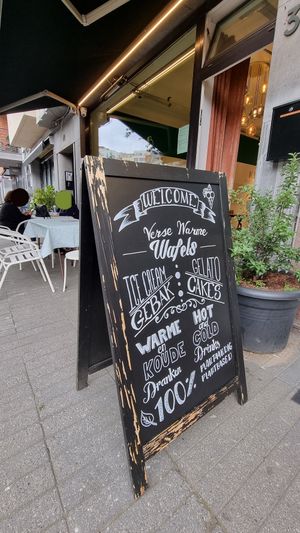 WELCOME
Verse Warme
Wafels
ICE CREAM
GELATO
GEBAK
CAKES
WARME en KOUDE Dranken
HOT and COLD Drinks
100%
PLANTAARDIG
PLANTBASED
3